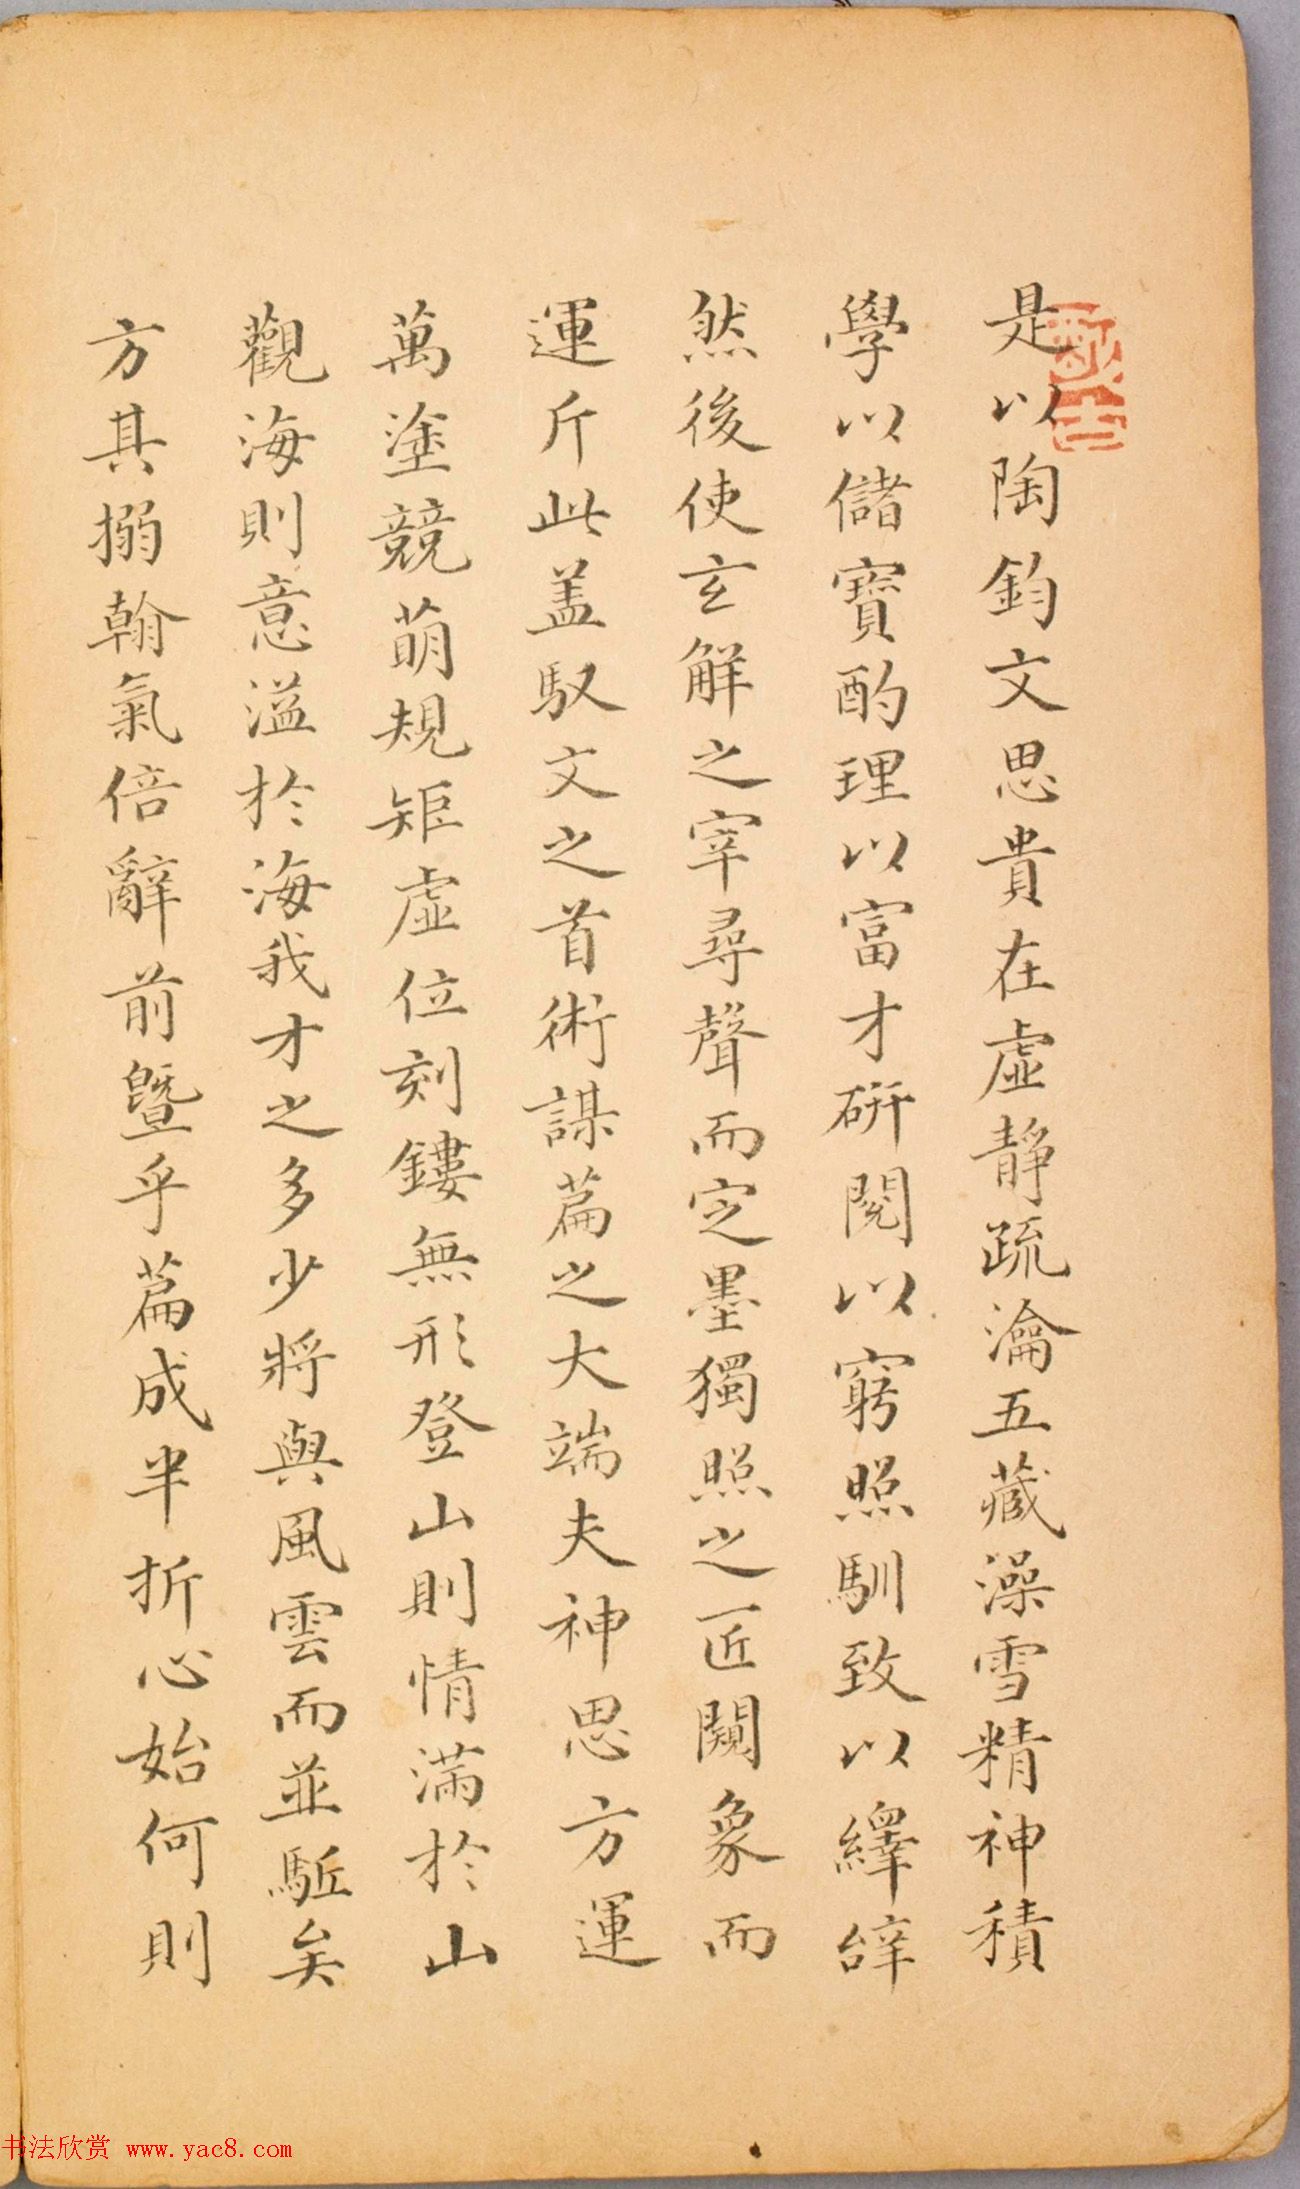 是以陶鈞文思貴在虛靜疏瀹五藏澡雪精神積
學以儲寶酌理以富才研閱以窮照馴致以繹辞
然後使玄解之宰尋聲而定墨獨照之匠闚象而
運斤此盖馭文之首術謀篇之大端夫神思方運
萬塗競萌規矩虛位刻鏤無形登山則情滿於山
觀海則意溢於海我才之多少將與風雲而並駈矣
方其搦翰氣倍辭前曁乎篇成半折心始何則
书法欣赏 www.yac8.com